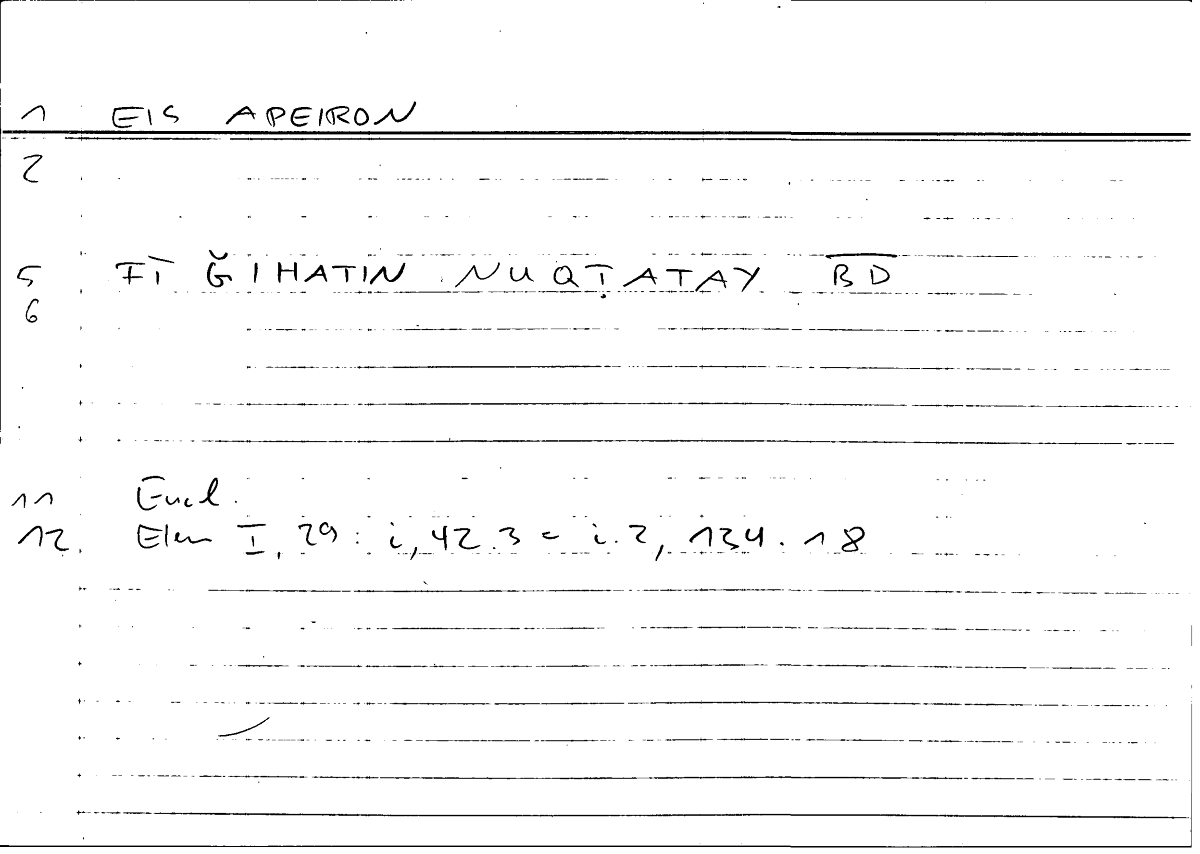 1 EIS APEIRON
2
5 FĪ ǦIHATIN NUQṬATAY B̅D̅
6
11 Eucl.
12 Elem I, 29 : i, 42.3 = i.2, 134.18